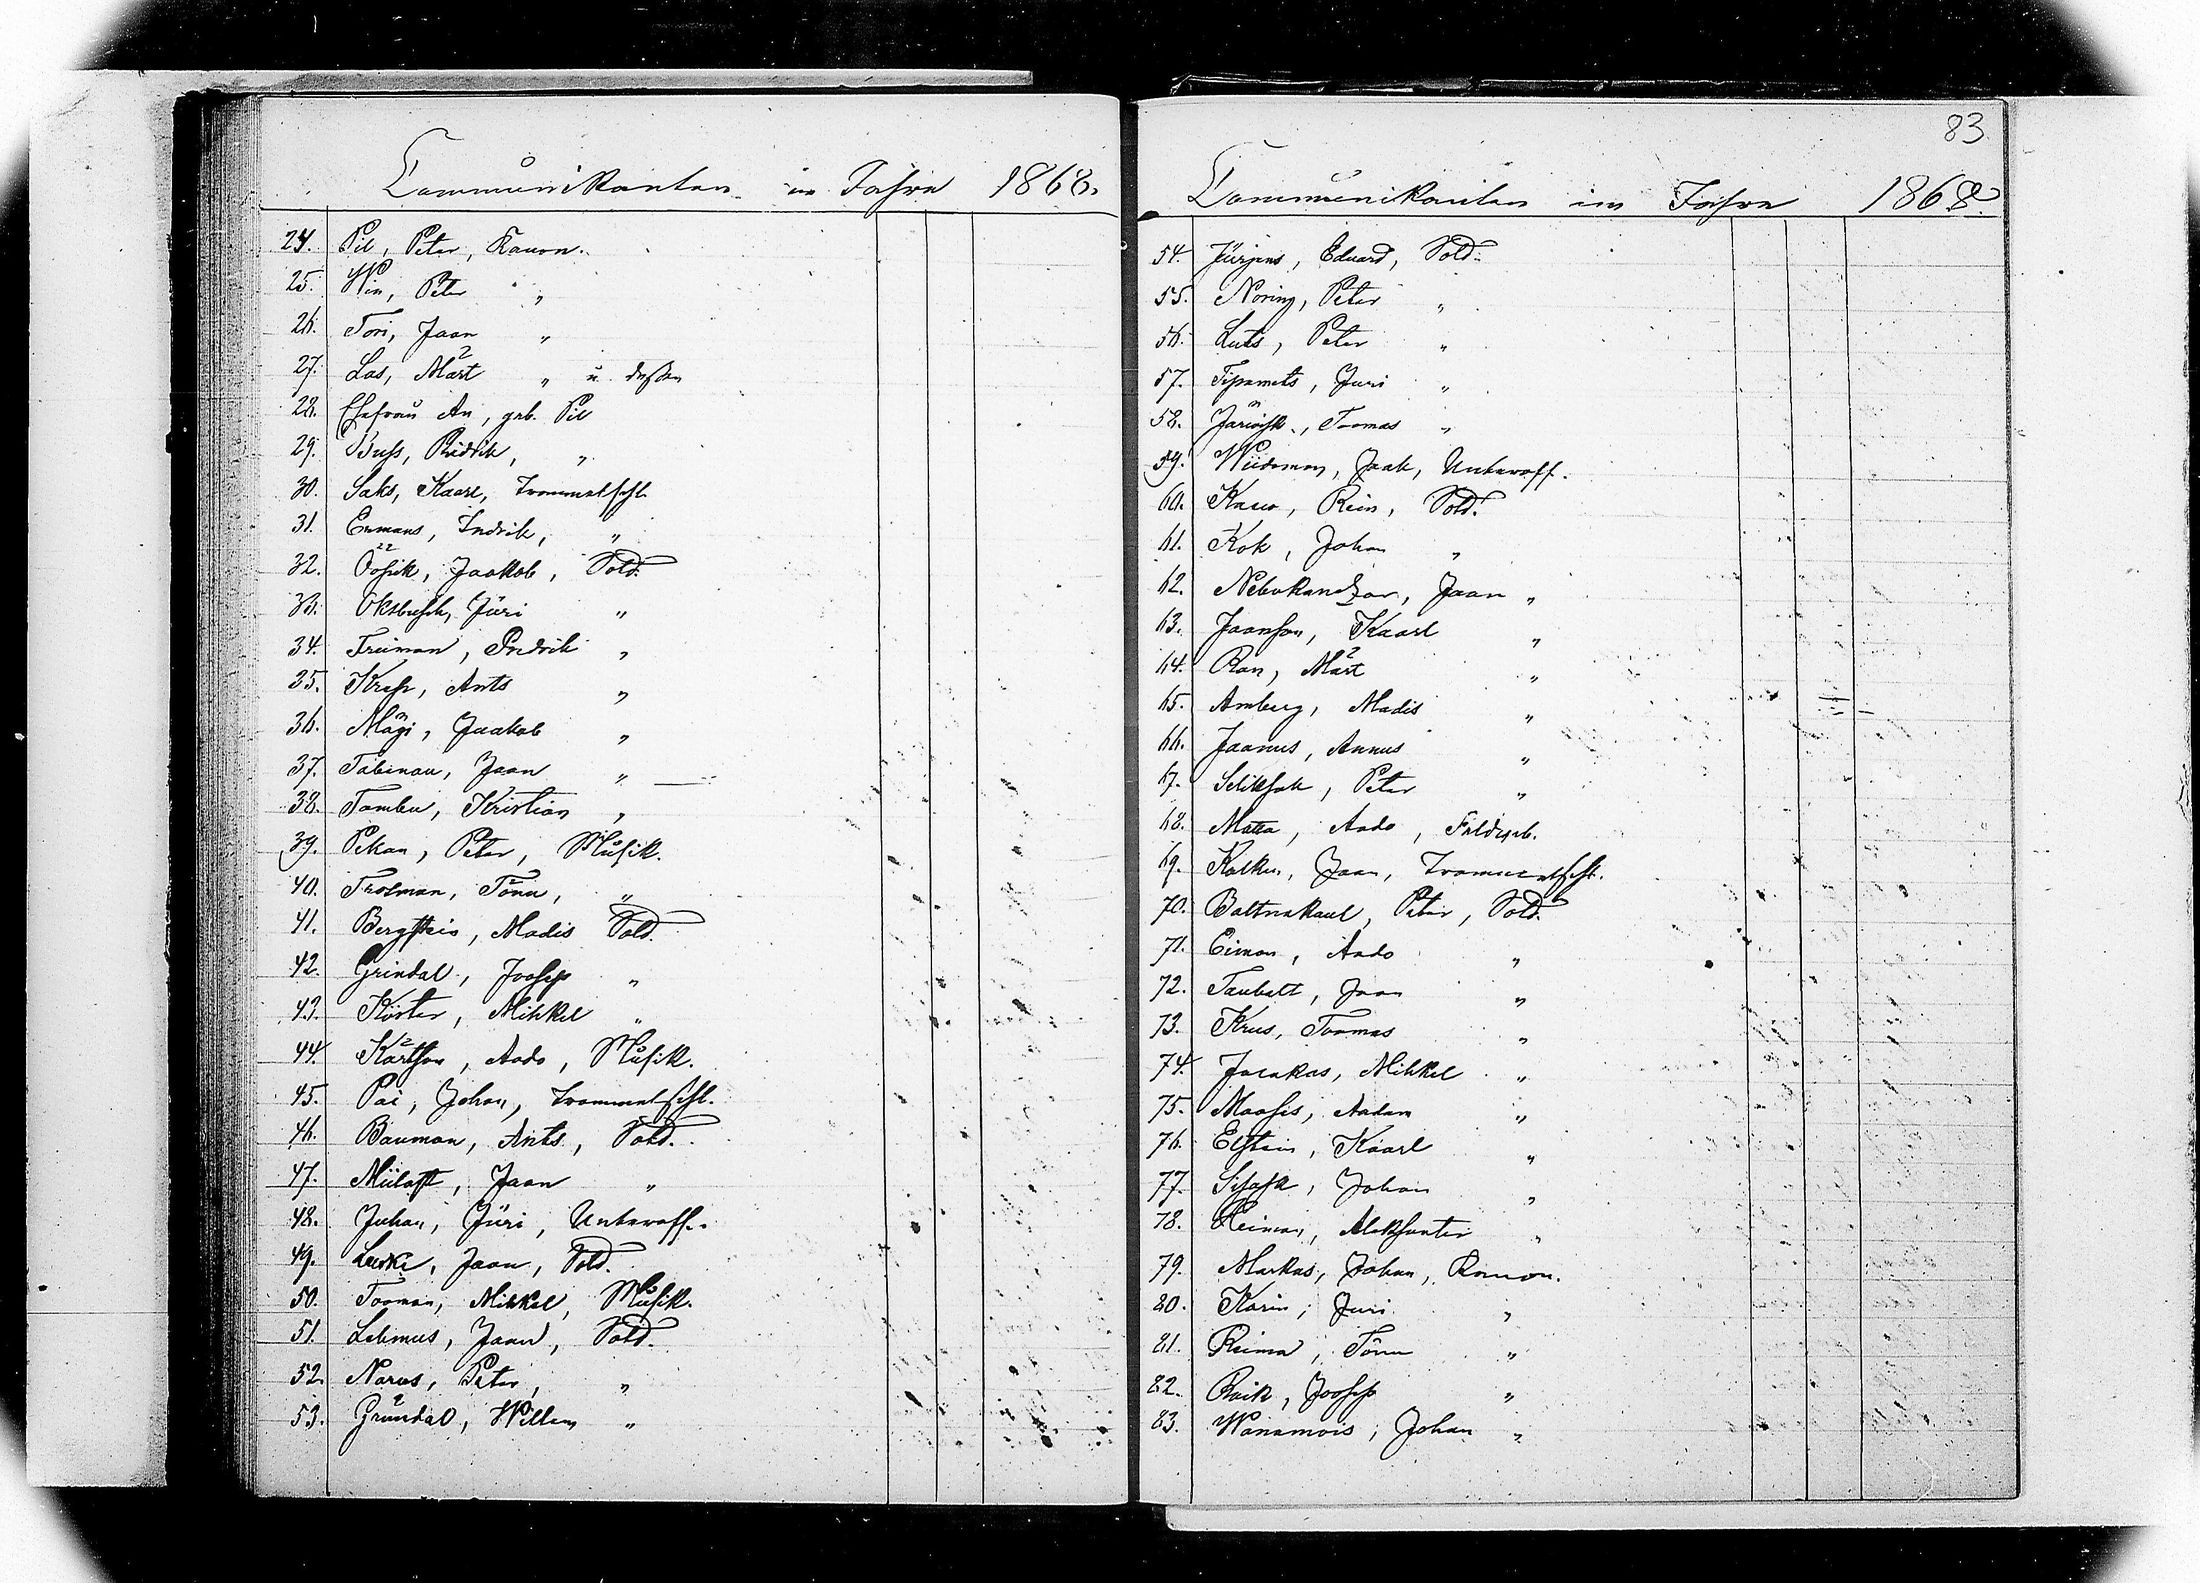 Communikanten im Jahre 1868.
24. Pil, Peter, Kanon.
25. Win, Peter "
26. Tori, Jaan "
27. Las, Märt " u. dessen
28. Ehefrau An, geb. Pil
29. Buss, Ridrik, "
30. Saks, Kaarl, Trommelschl.
31. Enmans, Indrik, "
32. Jaakob, Sold.
33. Oksbusch, Jüri "
34. Treiman, Indrik "
35. Kress, Ants "
36. Mägi, Jaakob "
37. Tabinau, Jaan "
38. Tambu, Kristian "
39. Pekan, Peter, Musik.
40. Trolman, Tõnu, "
41. Bergstein, Madis Sold.
42. Grindal, Joosep "
43. Körter, Mihkel "
44. Kärtson, Aado, Musik.
45. Pai, Johan, Trommelschl.
46. Bauman, Ants, Sold.
47. Miilast, Jaan "
48. Juhan, Jüri, Unteroff.
49. Jaan, Sold.
50. Tooman, Mihkel, Musik.
51. Lilimus, Jaan, Sold.
52. Narus, Peter, "
53. Gründal, Willem "
83
Communikanten im Jahre 1868.
54. Jürjens, Eduard, Sold.
55. Noring, Peter "
56. Luts, Peter "
57. Tipamets, Juri "
58. Toomas "
59. Wiideman, Jaak, Unteroff.
60. Kasw, Rein, Sold.
61. Kok, Johan "
62. Nebukandzar, Jaan "
63. Jaanson, Kaarl "
64. Ran, Märt "
65. Amberg, Madis "
66. Jaanus, Annus "
67. Seliksak, Peter "
68. Matta, Aado, Feldsch.
69. Kalkun, Jaan, Trommelschl.
70. Baltnakaul, Peter, Sold.
71. Eiman, Aado "
72. Taubelt, Jaan "
73. Krus, Toomas "
74. Jaakas, Mihkel "
75. Maasis, Aadam "
76. Elstein, Kaarl "
77. Sisask, Johan "
78. Reiman, Aleksanter "
79. Markus, Johan, Kanon.
80. Karin, Juri "
81. Reima, Tõnu "
82. Raik, Joosep "
83. Wanamois, Johan "